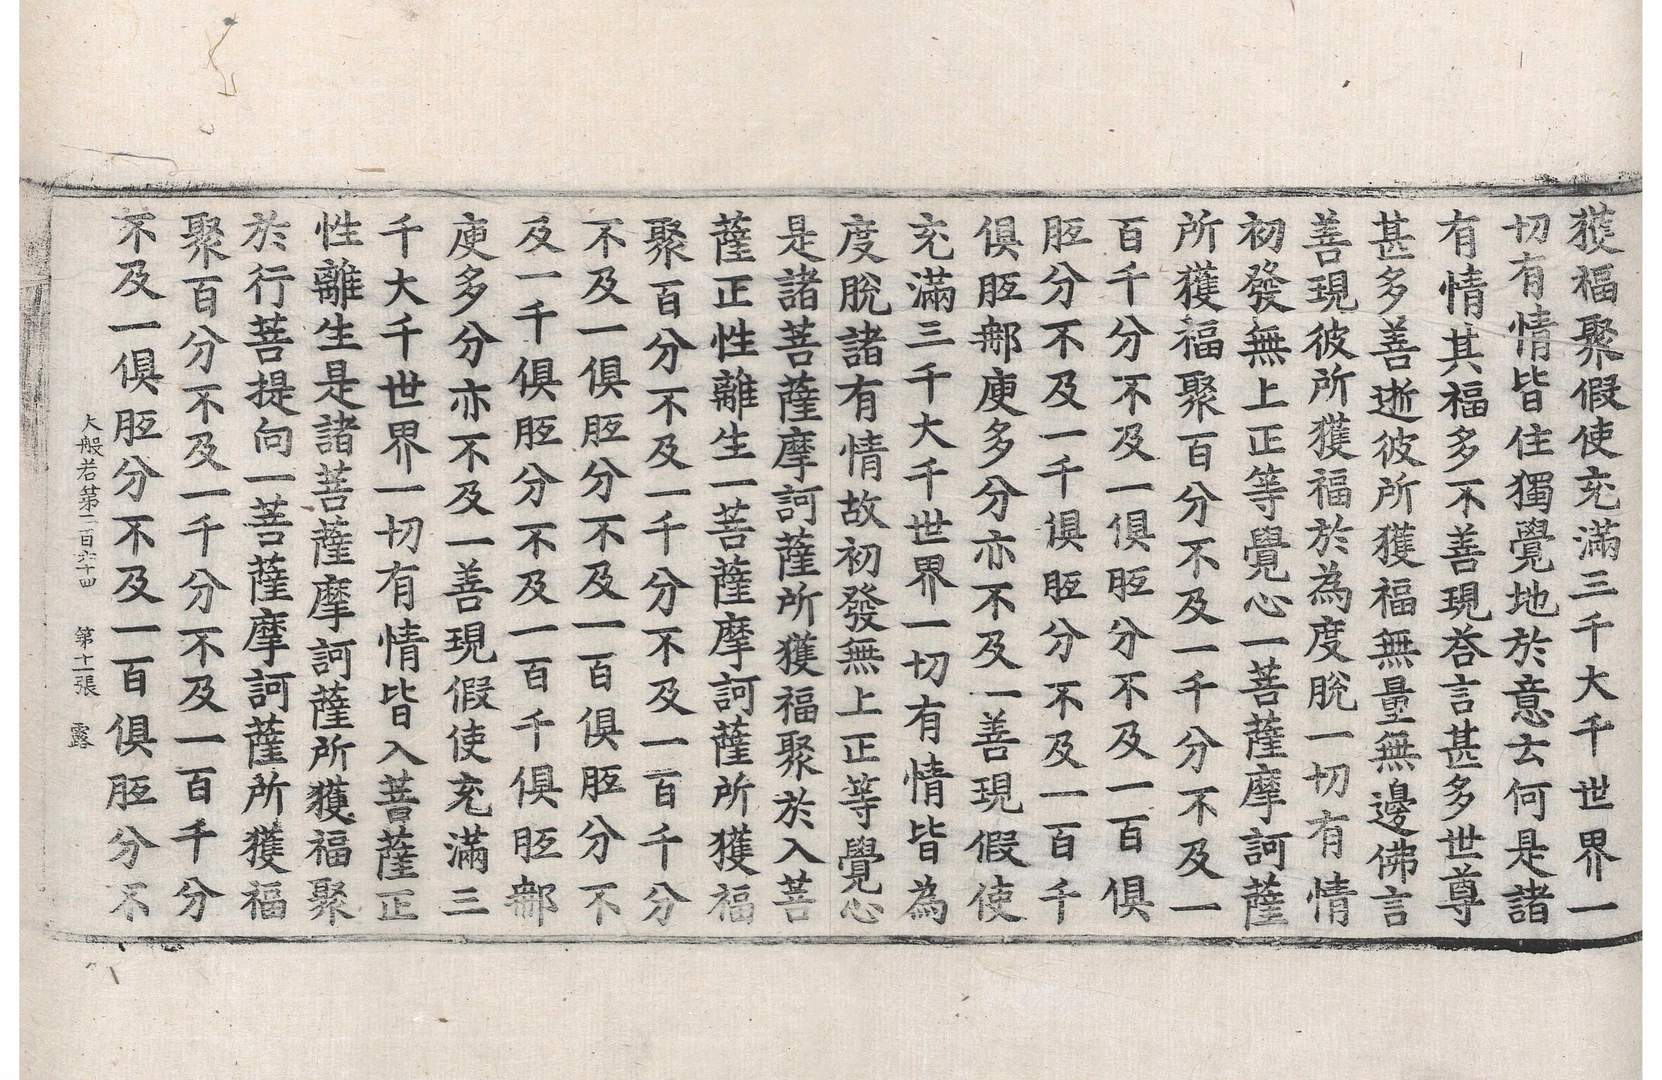 獲福聚假使充滿三千大千世界一
切有情皆住獨覺地於意云何是諸
有情其福多不善現荅言甚多世尊
甚多善逝彼所獲福無量無邊佛言
善現彼所獲福於為度脫一切有情
初發無上正等覺心一菩薩摩訶薩
所獲福聚百分不及一千分不及一
百千分不及一俱胝分不及一百俱
胝分不及一千俱胝分不及一百千
俱胝那庾多分亦不及一善現假使
充滿三千大千世界一切有情皆為
度脫諸有情故初發無上正等覺心
是諸菩薩摩訶薩所獲福聚於入菩
薩正性離生一菩薩摩訶薩所獲福
聚百分不及一千分不及一百千分
不及一俱胝分不及一百俱胝分不
及一千俱胝分不及一百千俱胝那
庾多分亦不及一善現假使充滿三
千大千世界一切有情皆入菩薩正
性離生是諸菩薩摩訶薩所獲福聚
於行菩提向一菩薩摩訶薩所獲福
聚百分不及一千分不及一百千分
不及一俱胝分不及一百俱胝分不
大般若第三百六十四 第十一張 露